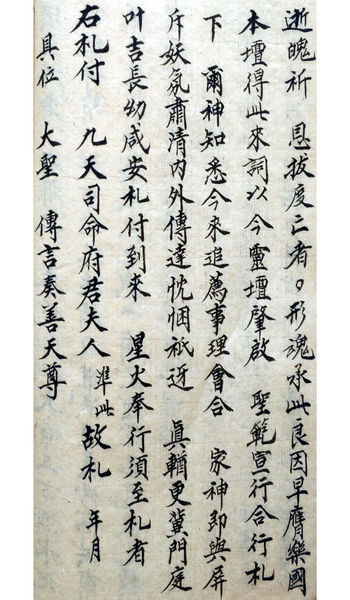 逝魄祈　恩拔度亡者。形魂承此良因早膺樂國
本壇得此來詞以今靈壇肇啟　聖範宣行合行札
下　爾神知悉今來追薦事理會合　家神即與屏
斥妖氛肅清內外傳達忱悃祇迓　真輶更冀門庭
叶吉長幼咸安札付到來　星火奉行須至札者
右札付　九天司命府君夫人準此故札　年月
具位　大聖　傳言奏善天尊